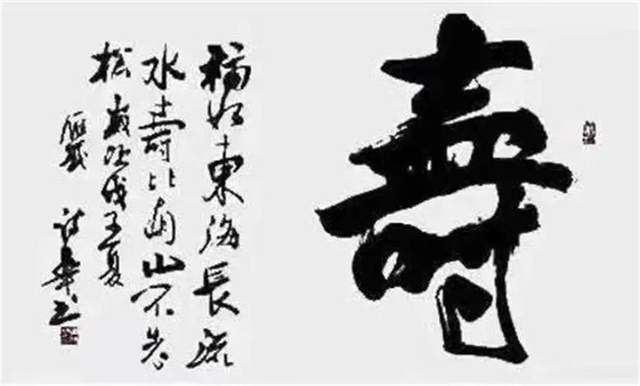 壽
福如東海長流
水壽比南山不老
松歲在戊子夏